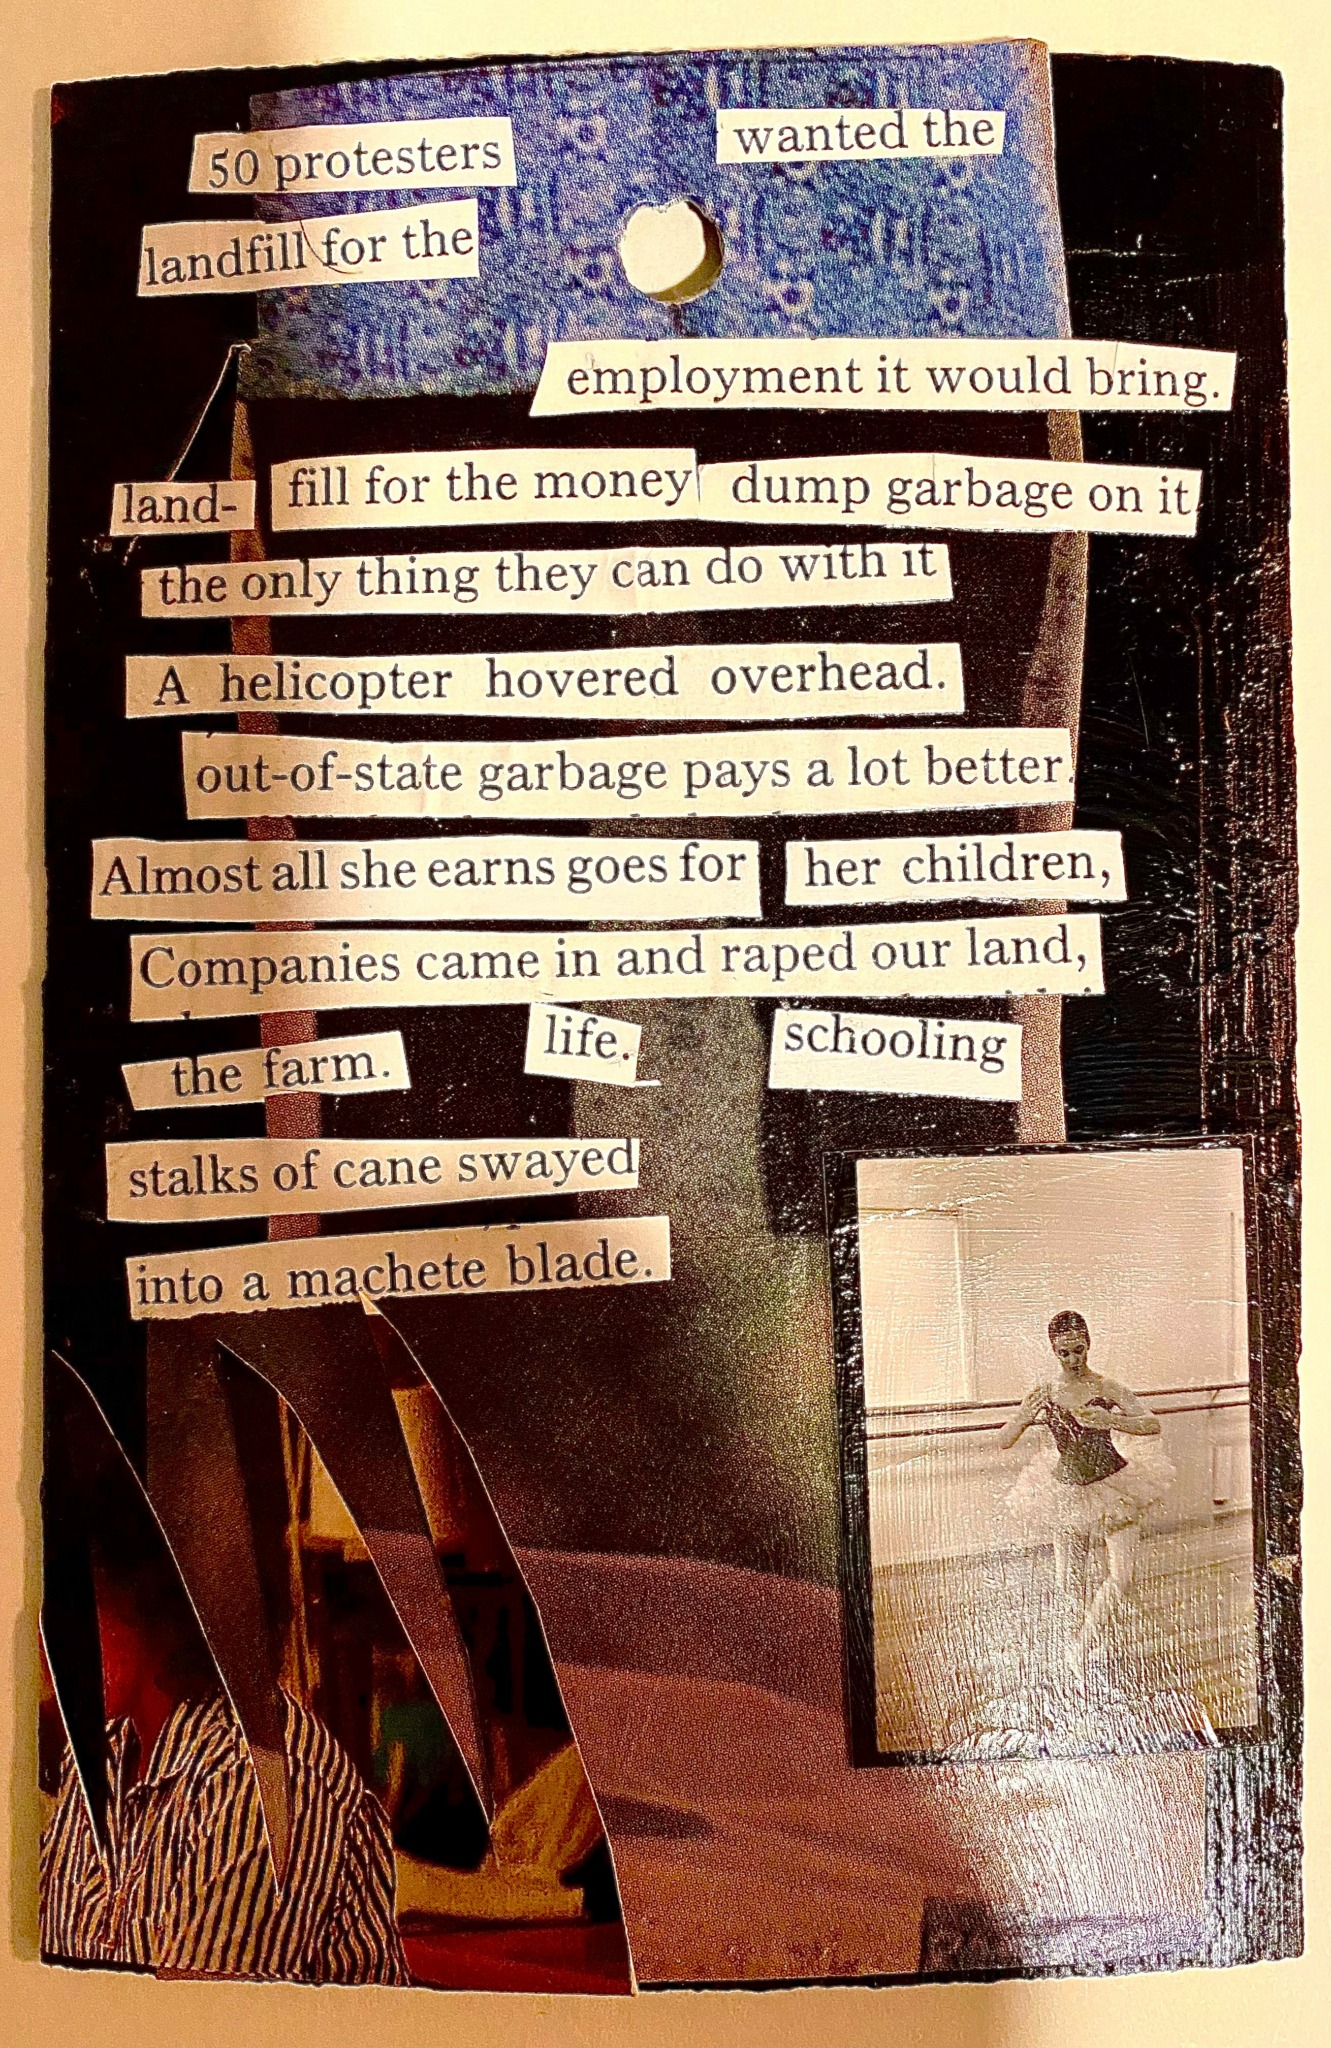 50 protesters wanted the
landfill for the
employment it would bring.
land- fill for the money dump garbage on it
the only thing they can do with it
A helicopter hovered overhead.
out-of-state garbage pays a lot better.
Almost all she earns goes for her children,
Companies came in and raped our land,
the farm. life. schooling
stalks of cane swayed
into a machete blade.